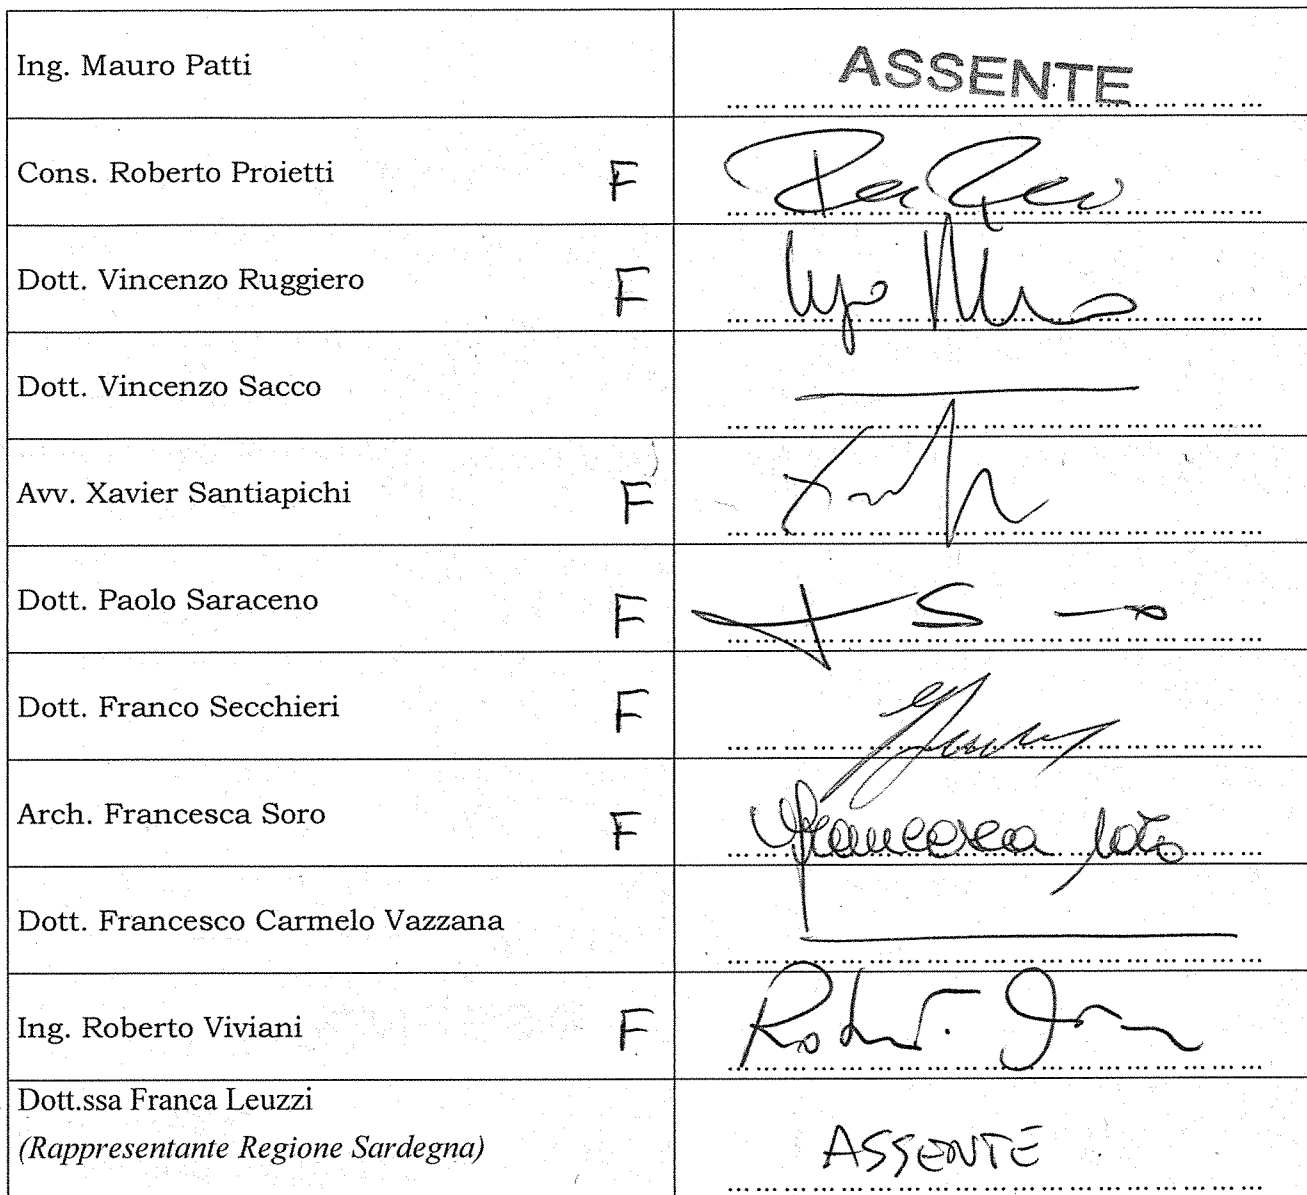 Ing. Mauro Patti ASSENTE
Cons. Roberto Proietti F
Dott. Vincenzo Ruggiero F
Dott. Vincenzo Sacco
Avv. Xavier Santiapichi F
Dott. Paolo Saraceno F
Dott. Franco Secchieri F
Arch. Francesca Soro F Francesca Soro
Dott. Francesco Carmelo Vazzana
Ing. Roberto Viviani F
Dott.ssa Franca Leuzzi
(Rappresentante Regione Sardegna) ASSENTE